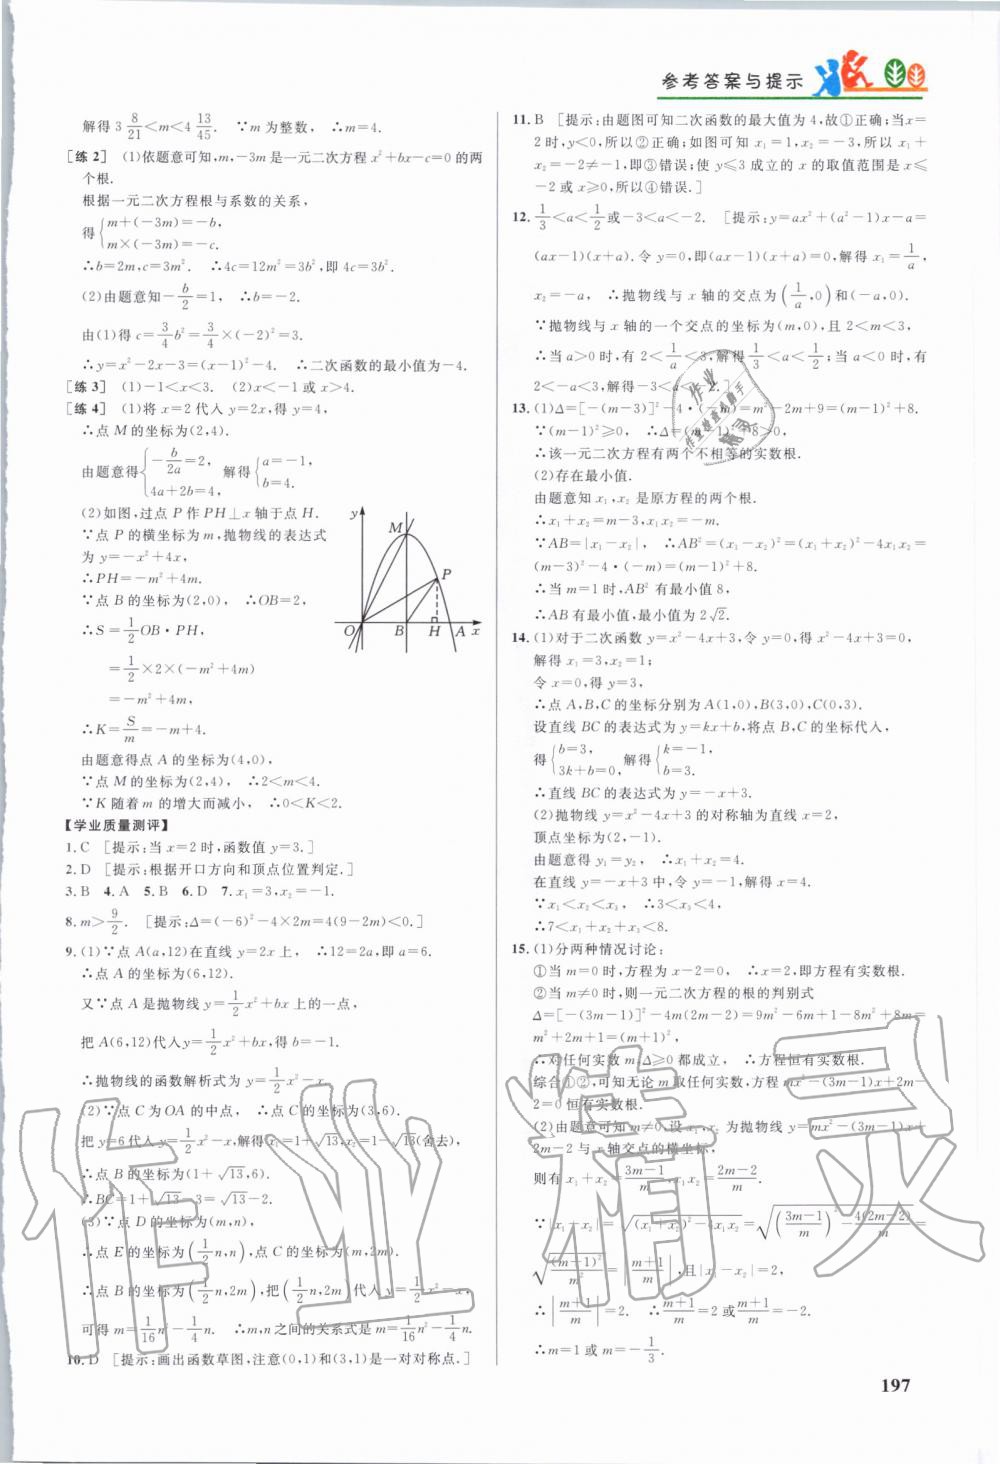 参考答案与提示
解得 3 8/21＜m＜4 13/45. ∵m 为整数，∴m=4.
[练 2] (1)依题意可知,m,-3m是一元二次方程 x²+bx-c=0 的两
个根.
根据一元二次方程根与系数的关系,
得{m+(-3m)=-b,
m×(-3m)=-c.
∴b=2m,c=3m². ∴4c=12m²=3b²,即 4c=3b².
(2)由题意知-b/2=1, ∴b=-2.
由(1)得 c=3/4b²=3/4×(-2)²=3.
∴y=x²-2x-3=(x-1)²-4. ∴二次函数的最小值为-4.
[练 3] (1)-1<x<3. (2)x<-1 或 x>4.
[练 4] (1)将 x=2 代入 y=2x,得 y=4,
∴点 M 的坐标为(2,4).
由题意得{-b/2a=2, 4a+2b=4, 解得{a=-1, b=4.
(2)如图,过点 P 作 PH⊥x 轴于点 H.
∵点 P 的横坐标为 m,抛物线的表达式
为 y=-x²+4x,
∴PH=-m²+4m.
∵点 B 的坐标为(2,0), ∴OB=2,
∴S=1/2OB·PH,
=1/2×2×(-m²+4m)
=-m²+4m,
∴K=S/m=-m+4.
y M P O B H A x
由题意得点 A 的坐标为(4,0),
∵点 M 的坐标为(2,4), ∴2<m<4.
∵K 随着 m 的增大而减小, ∴0<K<2.
【学业质量测评】
1. C [提示:当 x=2 时,函数值 y=3.]
2. D [提示:根据开口方向和顶点位置判定.]
3. B 4. A 5. B 6. D 7. x₁=3,x₂=-1.
8. m>9/2. [提示:Δ=(-6)²-4×2m=4(9-2m)<0.]
9. (1)∵点 A(a,12)在直线 y=2x 上, ∴12=2a,即 a=6.
∴点 A 的坐标为(6,12).
又∵点 A 是抛物线 y=1/2x²+bx 上的一点,
把 A(6,12)代入y=1/2x²+bx,得 b=-1.
∴抛物线的函数解析式为 y=1/2x²-x.
(2)∵点 C 为 OA 的中点, ∴点 C 的坐标为(3,6).
把 y=6代入 y=1/2x²-x,解得x₁=1+√13,x₂=1-√13(舍去),
∴点 B 的坐标为(1+√13,6).
∴BC=1+√13-3=√13-2.
(3)∵点 D 的坐标为(m,n),
∴点 E 的坐标为(1/2n,n),点 C 的坐标为(m,2m).
∴点 B 的坐标为(1/2n,2m),把(1/2n,2m)代入 y=1/2x²-x,
可得 m=1/16n²-1/4n. ∴m,n 之间的关系式是 m=1/16n²-1/4n.
10. D [提示:画出函数草图,注意(0,1)和(3,1)是一对对称点.]
11. B [提示:由题图可知二次函数的最大值为 4,故①正确;当x=
2时,y<0,所以②正确;如图可知 x₁=1,x₂=-3,所以 x₁+
x₂=-2≠-1,即③错误;使 y≤3 成立的 x 的取值范围是 x≤
-2 或 x≥0,所以④错误.]
12. 1/3<a<1/2或-3<a<-2. [提示:y=ax²+(a²-1)x-a=
(ax-1)(x+a).令 y=0,即(ax-1)(x+a)=0,解得 x₁=1/a,
x₂=-a, ∴抛物线与 x 轴的交点为(1/a,0)和(-a,0).
∵抛物线与 x 轴的一个交点的坐标为(m,0),且 2<m<3,
∴当 a>0 时,有 2<1/a<3,解得1/3<a<1/2;当 a<0 时,有
2<-a<3,解得-3<a<-2.]
13. (1)Δ=[-(m-3)]²-4·(-m)=m²-2m+9=(m-1)²+8.
∵(m-1)²≥0, ∴Δ=(m-1)²+8>0,
∴该一元二次方程有两个不相等的实数根.
(2)存在最小值.
由题意知 x₁,x₂ 是原方程的两个根.
∴x₁+x₂=m-3,x₁x₂=-m.
∵AB=|x₁-x₂|, ∴AB²=(x₁-x₂)²=(x₁+x₂)²-4x₁x₂=
(m-3)²-4·(-m)=(m-1)²+8.
∴当 m=1 时,AB² 有最小值 8,
∴AB 有最小值,最小值为 2√2.
14. (1)对于二次函数 y=x²-4x+3,令 y=0,得 x²-4x+3=0,
解得 x₁=3,x₂=1;
令 x=0,得 y=3,
∴点 A,B,C 的坐标分别为 A(1,0),B(3,0),C(0,3).
设直线 BC 的表达式为 y=kx+b,将点 B,C 的坐标代入,
得{b=3, 3k+b=0, 解得{k=-1, b=3.
∴直线 BC 的表达式为 y=-x+3.
(2)抛物线 y=x²-4x+3 的对称轴为直线 x=2,
顶点坐标为(2,-1).
由题意得 y₁=y₂, ∴x₁+x₂=4.
在直线 y=-x+3 中,令 y=-1,解得 x=4.
∵x₁<x₂<x₃, ∴3<x₃<4,
∴7<x₁+x₂+x₃<8.
15. (1)分两种情况讨论:
①当 m=0 时,方程为 x-2=0, ∴x=2,即方程有实数根.
②当 m≠0 时,则一元二次方程的根的判别式
Δ=[-(3m-1)]²-4m(2m-2)=9m²-6m+1-8m²+8m=
m²+2m+1=(m+1)²,
∴对任何实数 m,Δ≥0 都成立, ∴方程恒有实数根.
综合①②,可知无论 m 取任何实数,方程 mx²-(3m-1)x+2m-
2=0 恒有实数根.
(2)由题意可知 m≠0,设 x₁,x₂ 为抛物线 y=mx²-(3m-1)x+
2m-2 与 x 轴交点的横坐标,
则有 x₁+x₂=3m-1/m,x₁x₂=2m-2/m.
∵|x₁-x₂|=√(x₁+x₂)²-4x₁x₂=√(3m-1/m)²-4(2m-2)/m=
√(m+1)²/m²=|m+1/m|,且|x₁-x₂|=2,
∴|m+1/m|=2. ∴m+1/m=2 或m+1/m=-2.
∴m=1 或 m=-1/3.
197
作业精灵